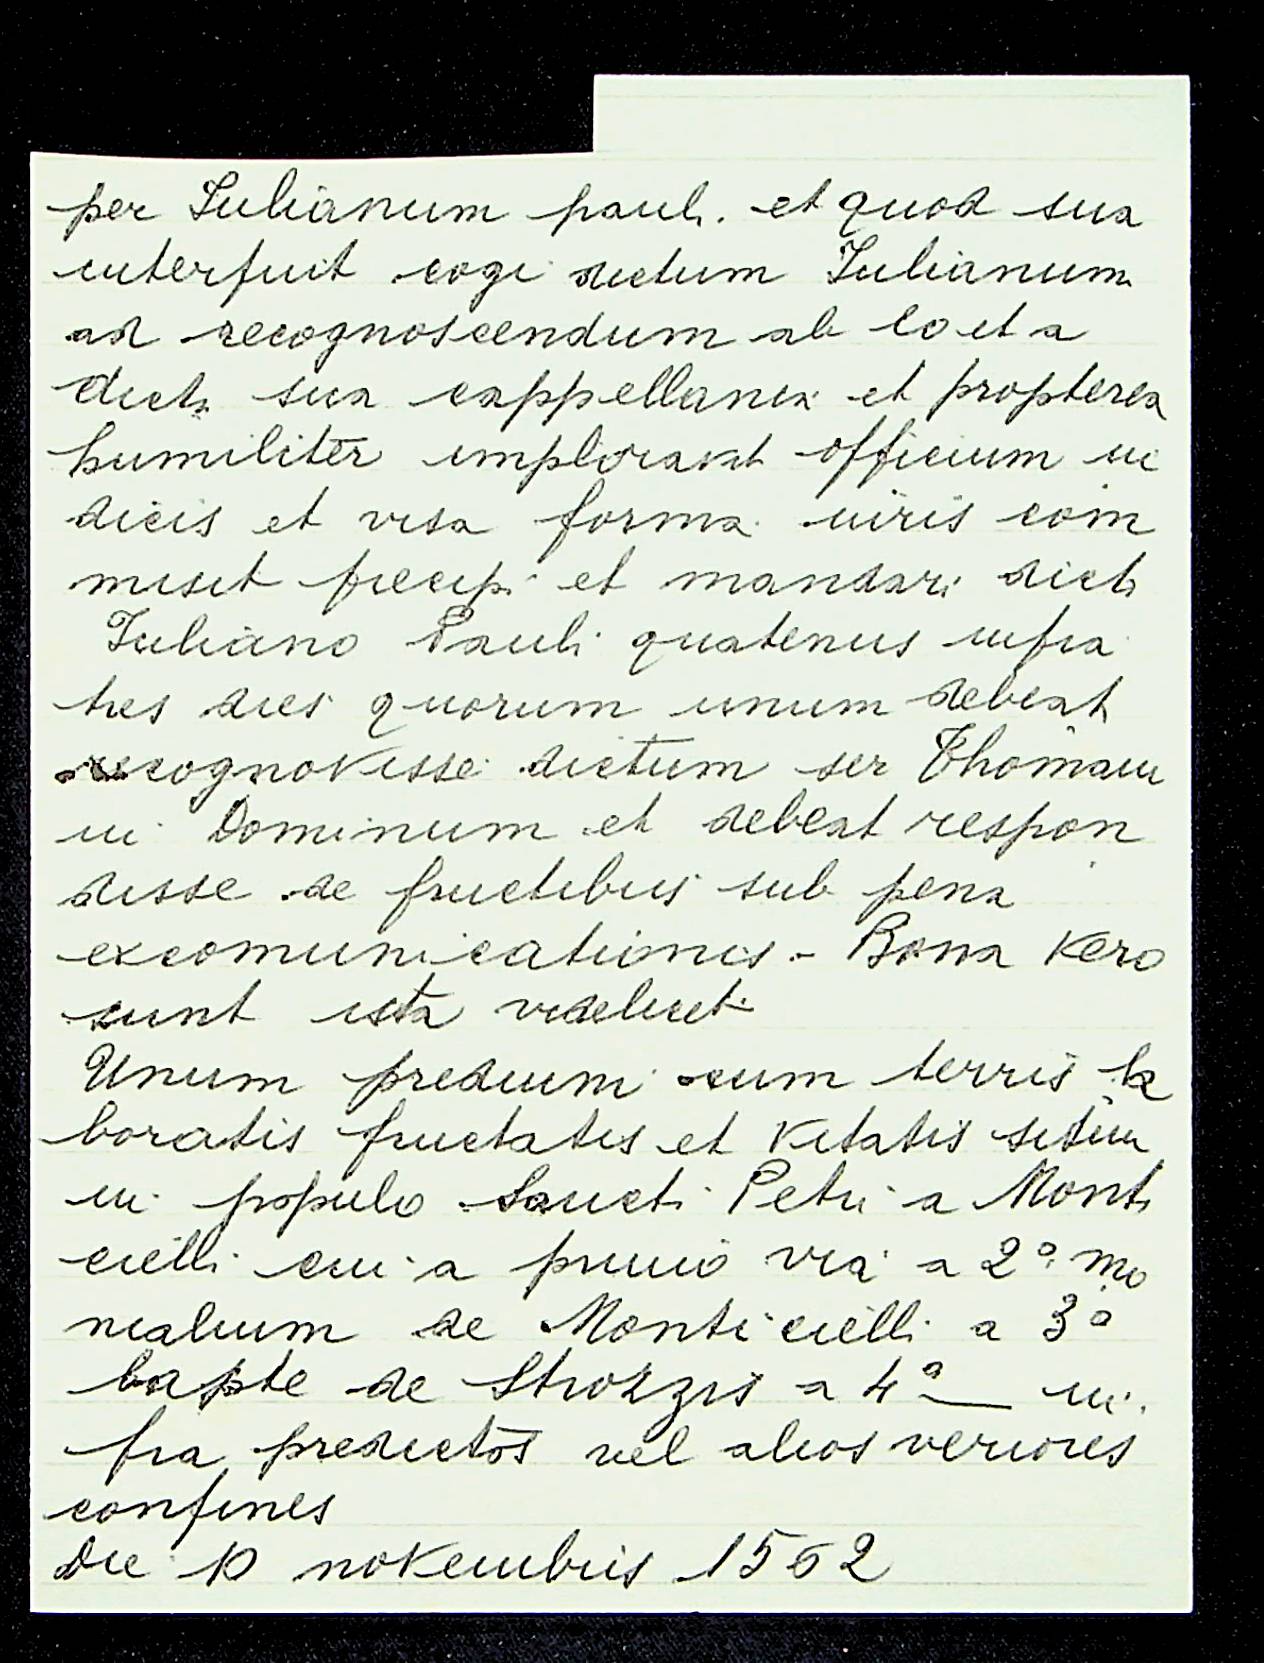 per Iulianum pauli. et quod sua
interfuit cogi dictum Iulianum
ad recognoscendum ab eo et a
dicta sua cappellania et propterea
humiliter imploravit officium iu
dicis et visa forma iuris com
misit precipi et mandari dicto
Iuliano Pauli quatenus infra
tres dies quorum unum debeat
recognovisse dictum ser Thomam
in Dominum et debeat respon
disse de fructibus sub pena
excomunicationis. - Bona vero
sunt ista videlicet
Unum predium cum terris la
boratis fructatis et vitatis situm
in populo Sancti Petri a Monti
cielli cui a primo via a 2º mo
nialium de Monticielli a 3º
bapte de Strozzis a 4º __ in
fra predictos vel alios veriores
confines
Die 10 novembris 1562